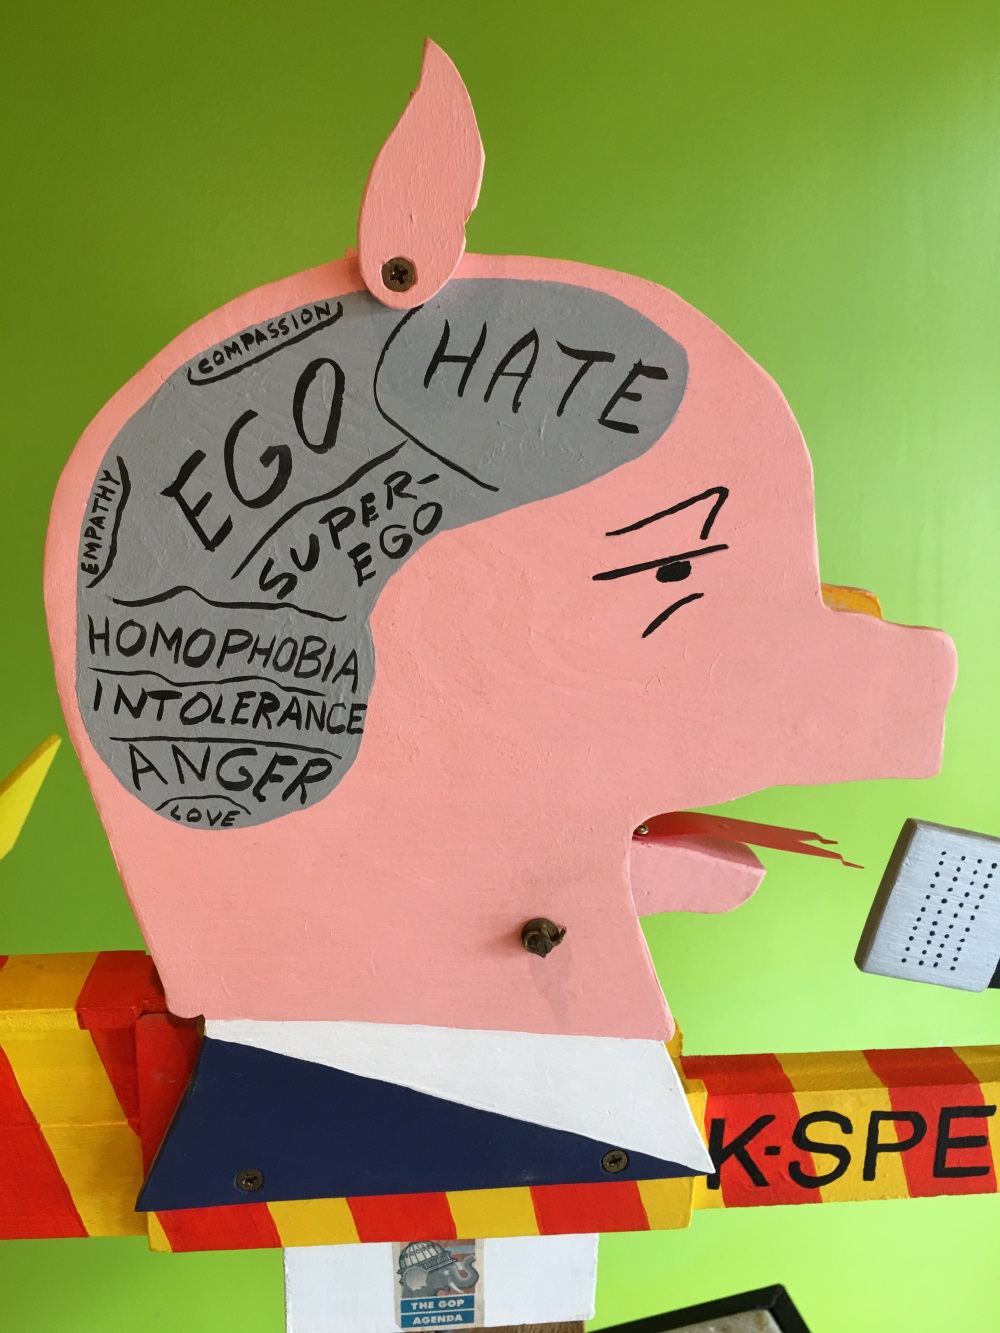 COMPASSION
HATE
EGO
EMPATHY
SUPER-
EGO
HOMOPHOBIA
INTOLERANCE
ANGER
LOVE
K-SPE
THE GOP
AGENDA